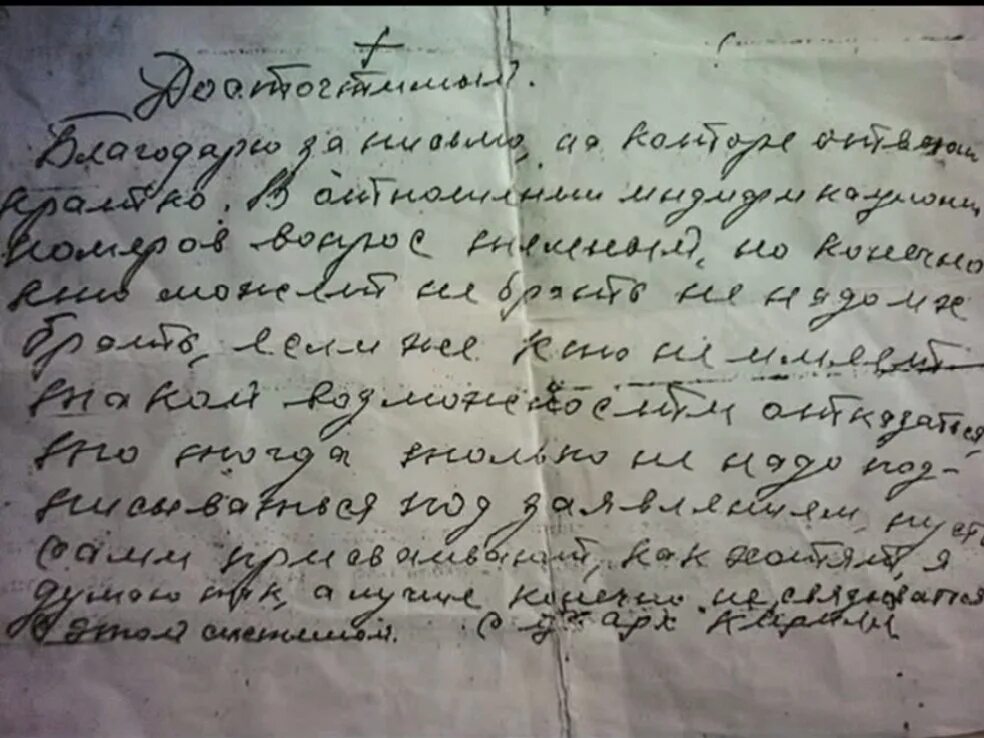 +
Досточтимый.
Благодарю за письмо, на которое отвечаю
кратко. В отношении индификационных
номеров вопрос тяжелый, но конечно
кто может не брать не надо их
брать, если же кто не имеет
такой возможности отказаться
то тогда только не надо под-
писываться под заявлением, пусть
сами присваивают, как хотят, я
думаю так, а лучше конечно не связываться
с этой системой. С ув. арх Кирилл